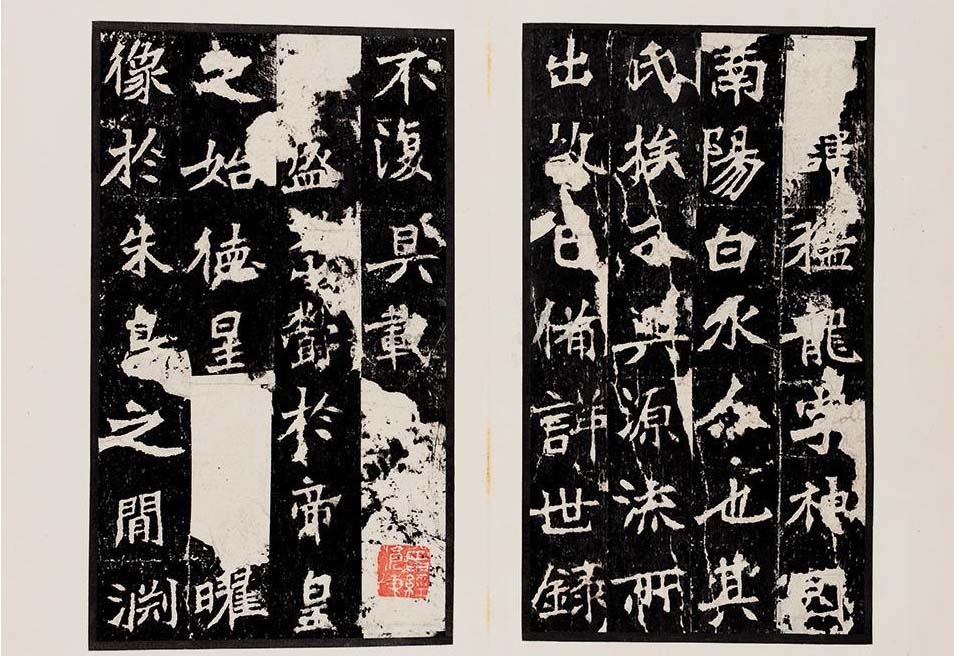 諱猛龍字神囧
南陽白水人也其
氏族分興源流所
出故已備詳世錄
不復具載
盛於帝皇
之始德星曜
像於朱鳥之間淵